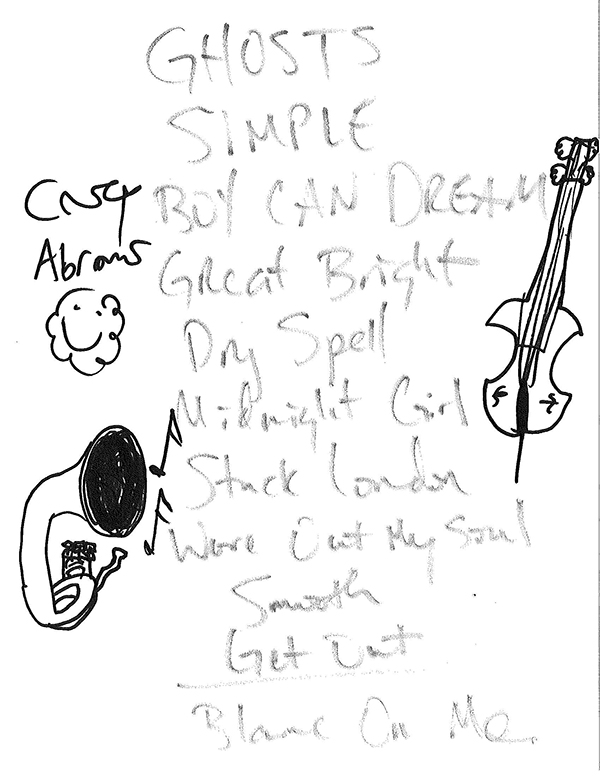 GHOSTS
SIMPLE
BOY CAN DREAM
Great Bright
Dry Spell
Midnight Girl
Stuck London
Wore Out My Soul
Smooth
Get Out
Blame On Me
Abrams